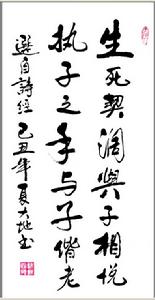 生死契阔與子相悦
执子之手与子偕老
選自詩經己丑年夏大地书